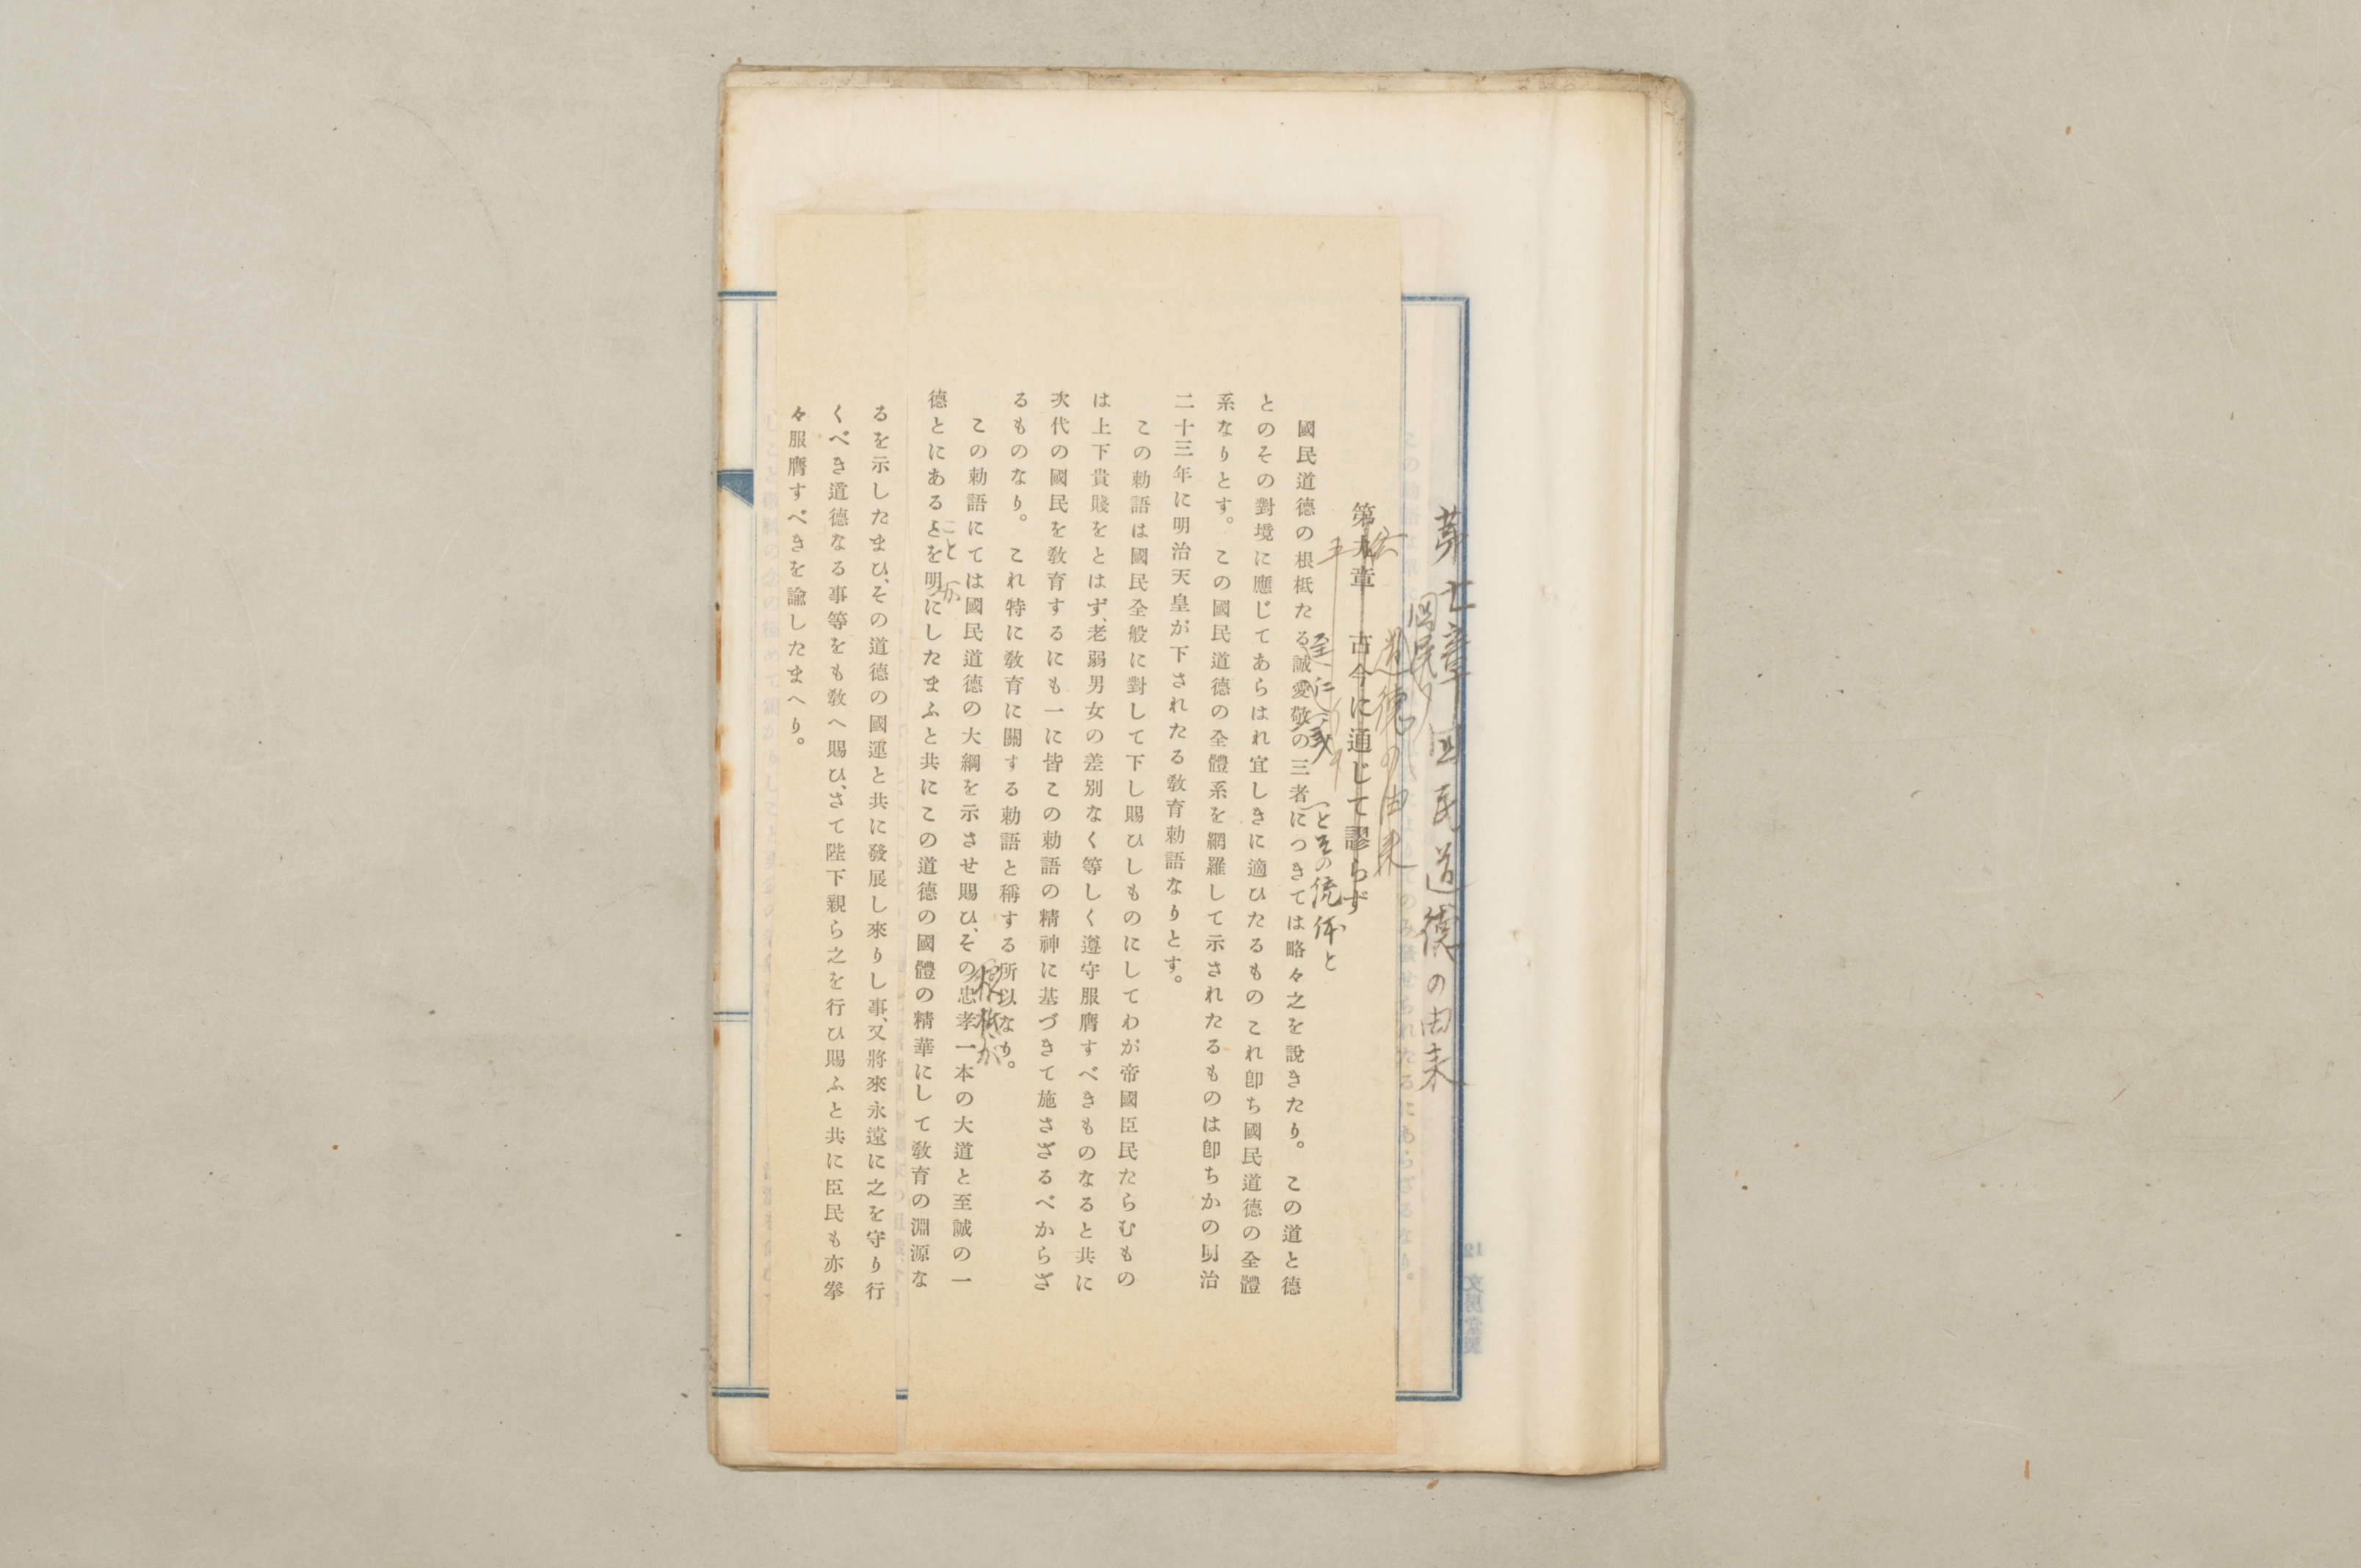 第七章 国民道徳の由来
国民
道徳の由来
第九章 古今に通じて謬らず
至仁
(とその統体と
國民道德の根柢たる誠愛敬の三者につきては略々之を說きたり。この道と德
とのその對境に應じてあらはれ宜しきに適ひたるものこれ卽ち國民道德の全體
系なりとす。この國民道德の全體系を網羅して示されたるものは卽ちかの明治
二十三年に明治天皇が下されたる敎育勅語なりとす。
この勅語は國民全般に對して下し賜ひしものにしてわが帝國臣民たらむもの
は上下貴賤をとはず、老弱男女の差別なく等しく遵守服膺すべきものなると共に
次代の國民を敎育するにも一に皆この勅語の精神に基づきて施さざるべからざ
るものなり。これ特に敎育に關する勅語と稱する所以なり。
根柢が
この勅語にては國民道德の大綱を示させ賜ひ、その忠孝一本の大道と至誠の一
こと
か
德とにあるとを明にしたまふと共にこの道德の國體の精華にして敎育の淵源な
るを示したまひ、その道德の國運と共に發展し來りし事、又將來永遠に之を守り行
くべき道德なる事等をも敎へ賜ひ、さて陛下親ら之を行ひ賜ふと共に臣民も亦拳
々服膺すべきを諭したまへり。
文房堂製